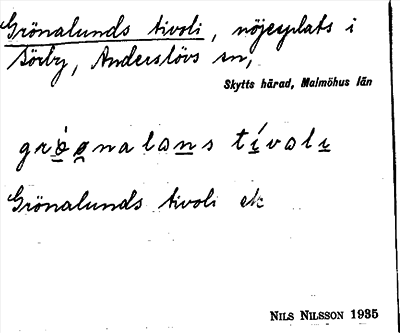 Grönalunds tivoli, nöjesplats i
Sörby, Anderslövs sn,
Skytts härad, Malmöhus län
grø̀ønalans tívalɩ
Grönalunds tivoli ek
NILS NILSSON 1935